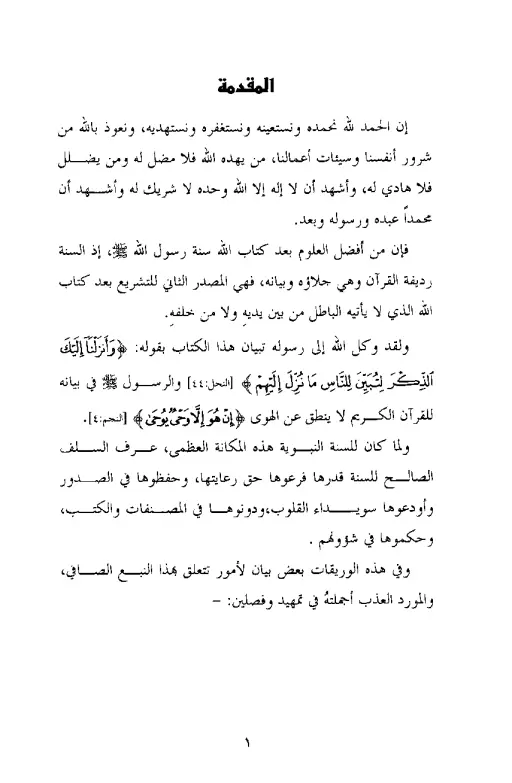 المقدمة
إن الحمد لله نحمده ونستعينه ونستغفره ونستهديه، ونعوذ بالله من
شرور أنفسنا وسيئات أعمالنا، من يهده الله فلا مضل له ومن يضلل
فلا هادي له، وأشهد أن لا إله إلا الله وحده لا شريك له وأشهد أن
محمداً عبده ورسوله وبعد.
فإن من أفضل العلوم بعد كتاب الله سنة رسول الله ﷺ، إذ السنة
رديفة القرآن وهي جلاؤه وبيانه، فهي المصدر الثاني للتشريع بعد كتاب
الله الذي لا يأتيه الباطل من بين يديهِ ولا من خلفهِ.
ولقد وكل الله إلى رسوله تبيان هذا الكتاب بقوله: ﴿وَأَنزَلْنَآ إِلَيْكَ
الذِّكْرَ لِتُبَيِّنَ لِلنَّاسِ مَا نُزِّلَ إِلَيْهِمْ﴾ [النحل:٤٤] والرسول ﷺ في بيانه
للقرآن الكريم لا ينطق عن الهوى ﴿إِنْ هُوَ إِلَّا وَحْيٌ يُوحَى﴾ [النجم:٤].
ولما كان للسنة النبوية هذه المكانة العظمى، عرف السلف
الصالح للسنة قدرها فرعوها حق رعايتها، وحفظوها في الصدور
وأودعوها سويداء القلوب،ودونوها في المصنفات والكتب،
وحكموها في شؤونهم .
وفي هذه الوريقات بعض بيان لأمور تتعلق بهذا النبع الصافي،
والمورد العذب أجملتهُ في تمهيد وفصلين: –
١